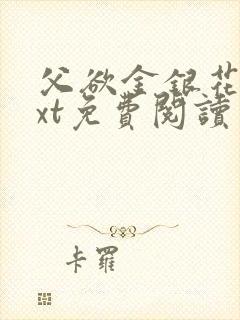 父欲金銀花
xt免費閱讀
卡羅